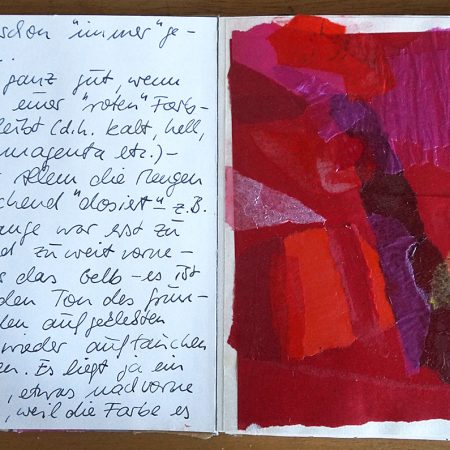 schon "immer" ge-
...
ganz gut, wenn
einer "roten" Farb-
leibt (d.h. kalt, hell,
magenta etc.)-
allem die Mengen
chend "dosiert - z.B.
ange war erst zu
d zu weit vorne-
s das Gelb - es ist
den Ton des grün-
den aufgeklebten
wieder auftauchen
en. Es liegt ja ein
, etwas nach vorne
, weil die Farbe es